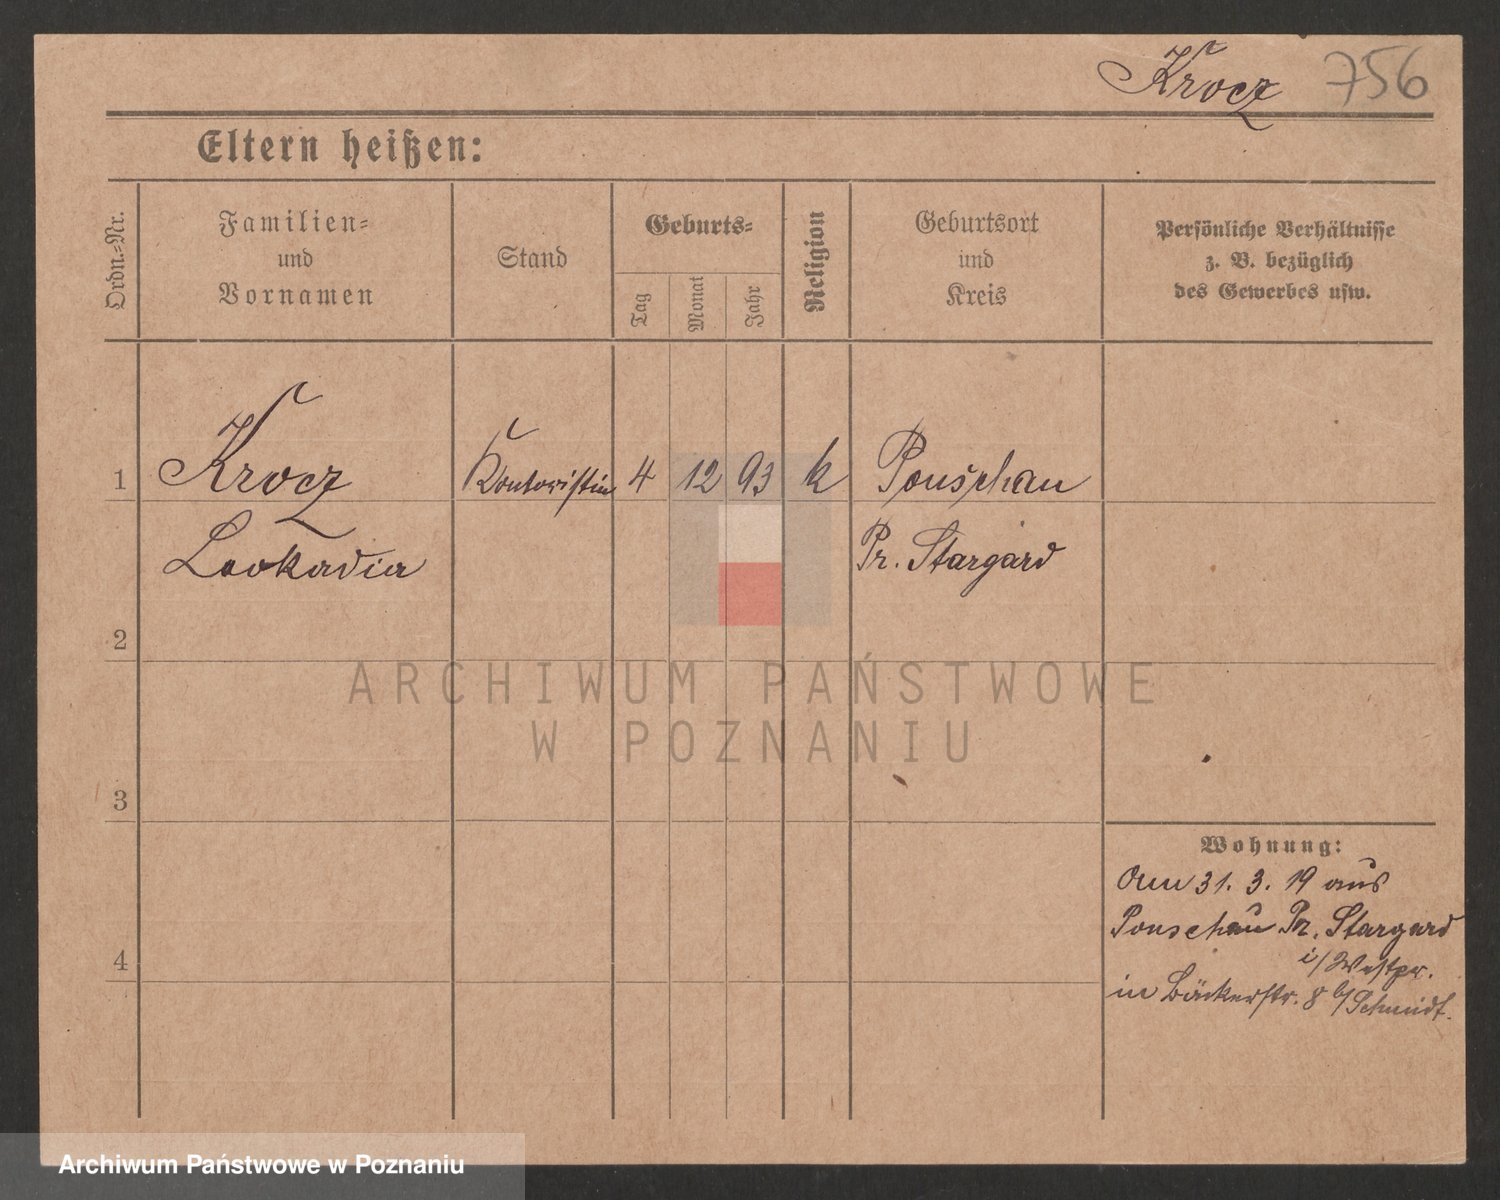 Krocz 756
Eltern heißen:
Ordn.-Nr.
Familien-
und
Vornamen
Stand
Geburts-
Tag
Monat
Jahr
Religion
Geburtsort
und
Kreis
Persönliche Verhältnisse
z. B. bezüglich
des Gewerbes usw.
1 Krocz Kontoristin 4 12 93 k Ponschau
Leokadia Pr. Stargard
2
3
4
Wohnung:
Am 31. 3. 19 aus
Ponschau Pr. Stargard
i/Westpr.
in Bäckerstr. 8 b/Schmidt.
ARCHIWUM PAŃSTWOWE
W POZNANIU
Archiwum Państwowe w Poznaniu